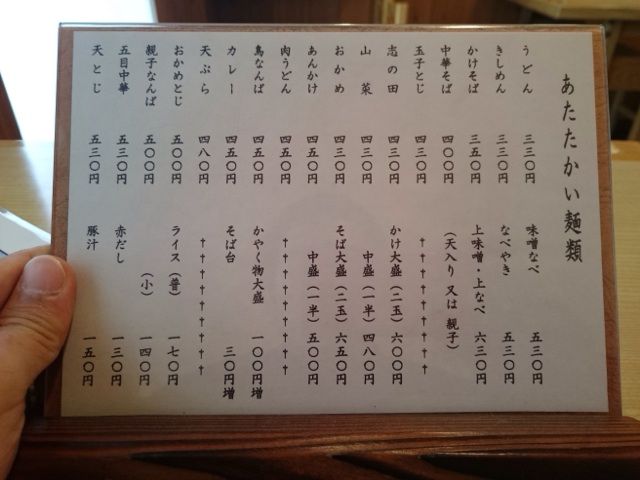 あたたかい麺類
うどん 三三〇円
きしめん 三三〇円
かけそば 三五〇円
中華そば 四〇〇円
玉子とじ 四三〇円
志の田 四三〇円
山菜 四三〇円
おかめ 四三〇円
あんかけ 四五〇円
肉うどん 四五〇円
鳥なんば 四五〇円
カレー 四五〇円
天ぷら 四八〇円
おかめとじ 五〇〇円
親子なんば 五〇〇円
五目中華 五三〇円
天とじ 五三〇円
味噌なべ 五三〇円
なべやき 五三〇円
上味噌・上なべ 六三〇円
(天入り又は親子)
††††††††††
かけ大盛(二玉) 六〇〇円
中盛(一半) 四八〇円
そば大盛(二玉) 六五〇円
中盛(一半) 五〇〇円
††††††††††
かやく物大盛 一〇〇円増
そば台 三〇円増
††††††††††
ライス(普) 一七〇円
(小) 一四〇円
赤だし 一三〇円
豚汁 一五〇円